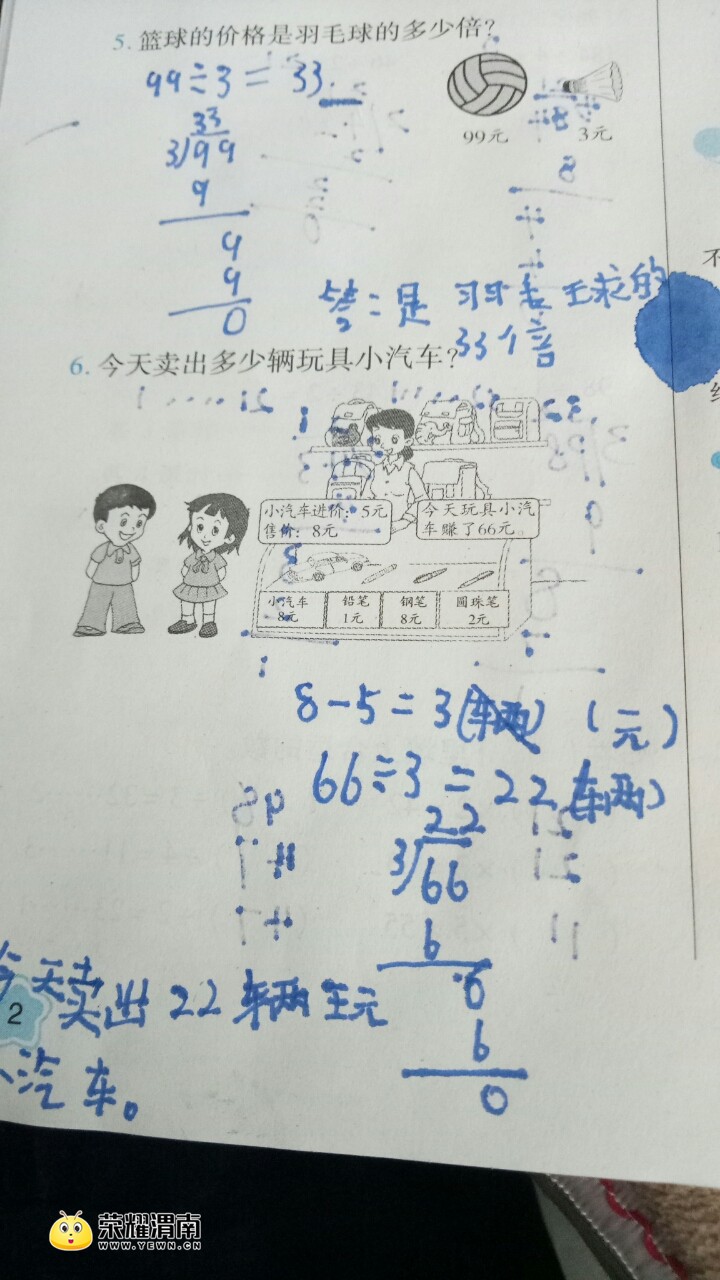 5. 篮球的价格是羽毛球的多少倍?
99÷3=33
99元
3元
33
3/99
9
9
9
0
答:是羽毛球的
33个倍
6. 今天卖出多少辆玩具小汽车?
小汽车进价:5元
售价:8元
今天玩具小汽
车赚了66元。
小汽车
8元
铅笔
1元
钢笔
8元
圆珠笔
2元
8-5=3(辆) (元)
66÷3=22(辆)
22
3/66
6
6
6
0
今天卖出22辆玩
小汽车。
2
荣耀渭南
WWW.YEWN.CN